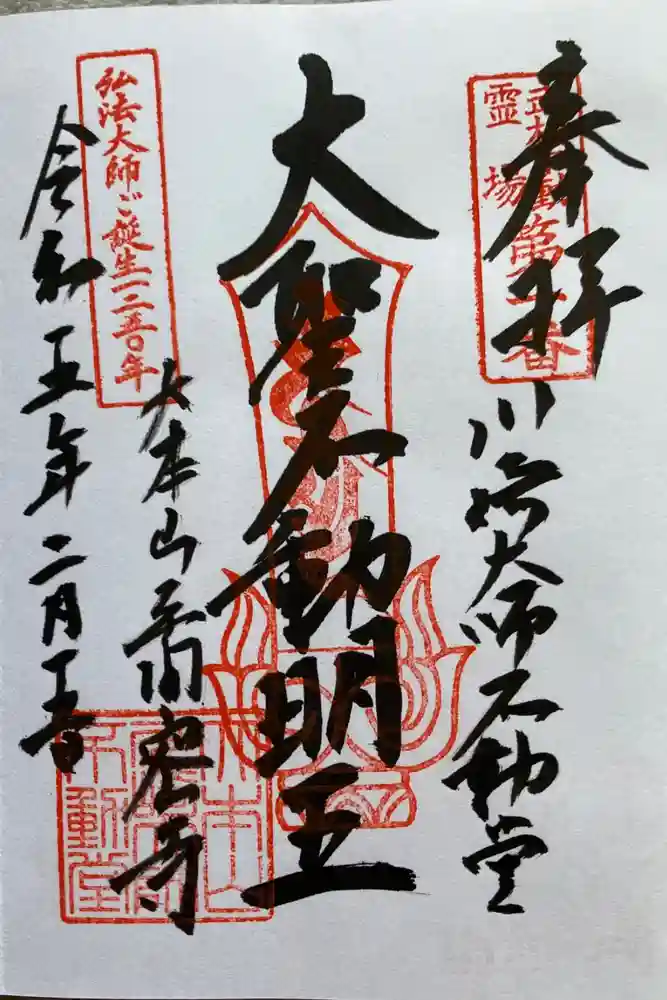 奉拝
武相不動霊場第一番
川崎大師不動堂
大聖不動明王
弘法大師ご誕生一二五〇年
大本山平間密寺
令和五年二月一日